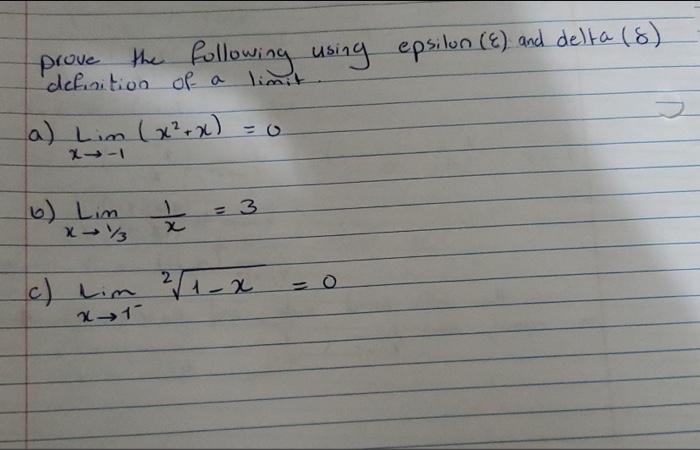 prove the following using epsilon (ε) and delta (δ)
definition of a limit.
a) Lim (x² + x) = 0
x → -1
b) Lim 1/x = 3
x → 1/3
c) Lim ²√1 - x = 0
x → 1⁻